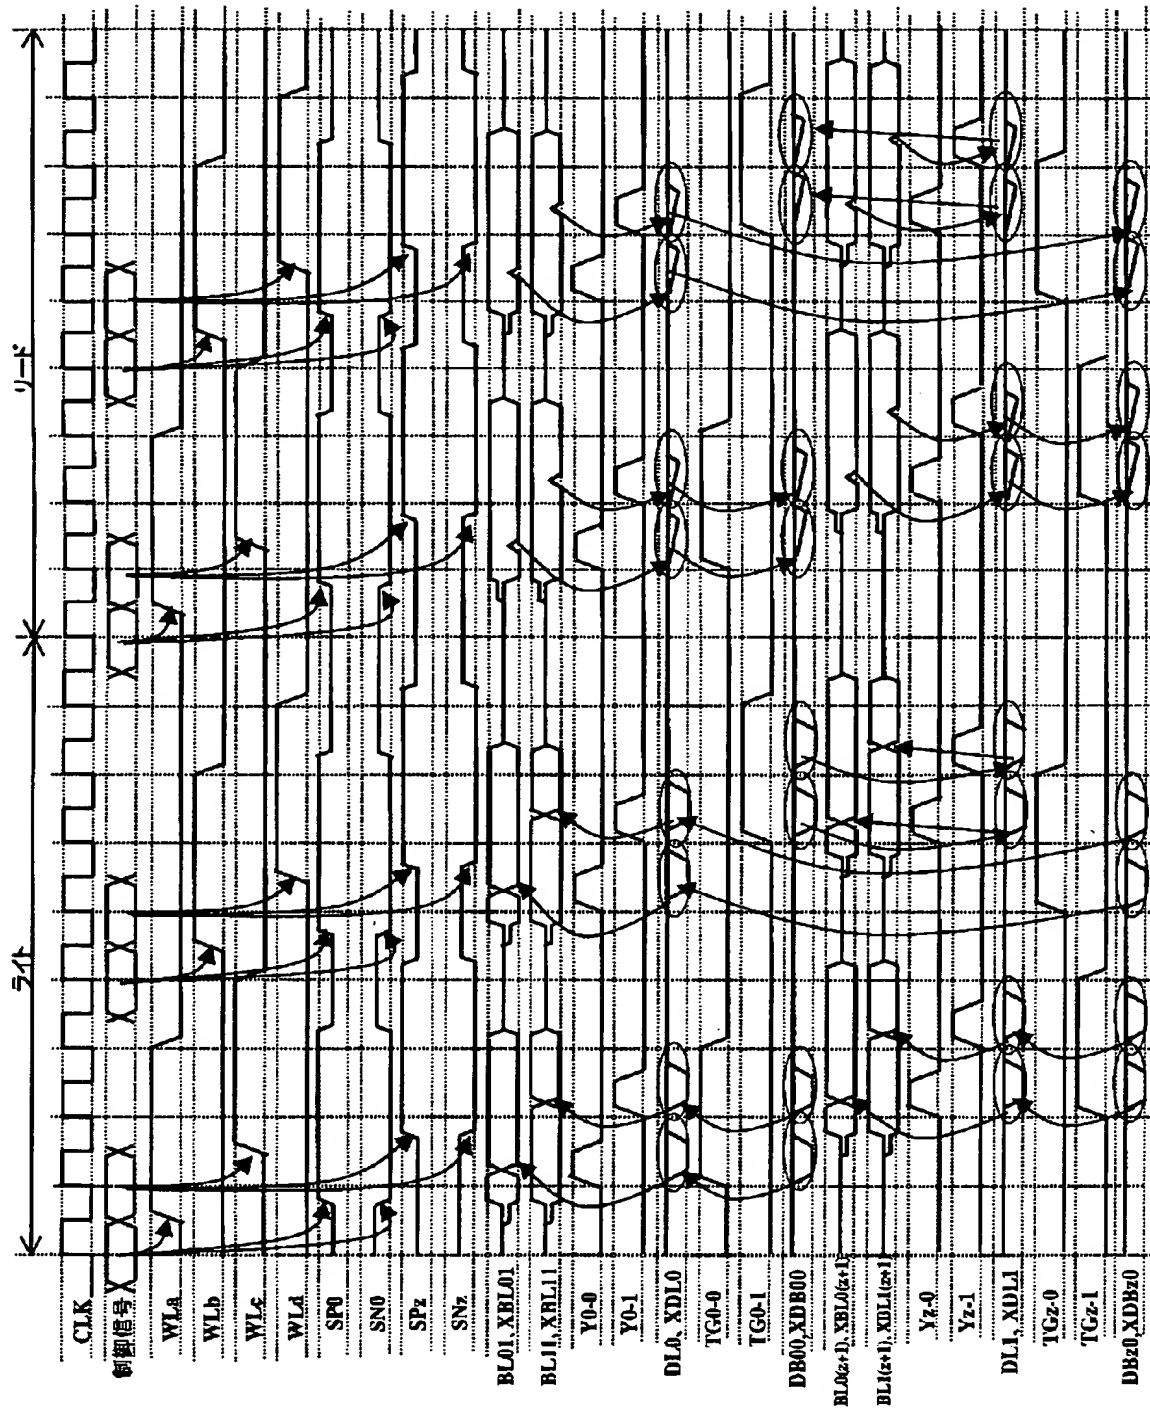 ライト
リード
CLK
制御信号
WLa
WLb
WLc
WLd
SP0
SN0
SPz
SNz
BL01、XBL01
BL11、XBL11
Y0-0
Y0-1
DL0、XDL0
TG0-0
TG0-1
DB00,XDB00
BL0(z+1), XBL0(z+1)
BL1(z+1), XDL1(z+1)
Yz-0
Yz-1
DL1、XDL1
TGz-0
TGz-1
DBz0,XDBz0